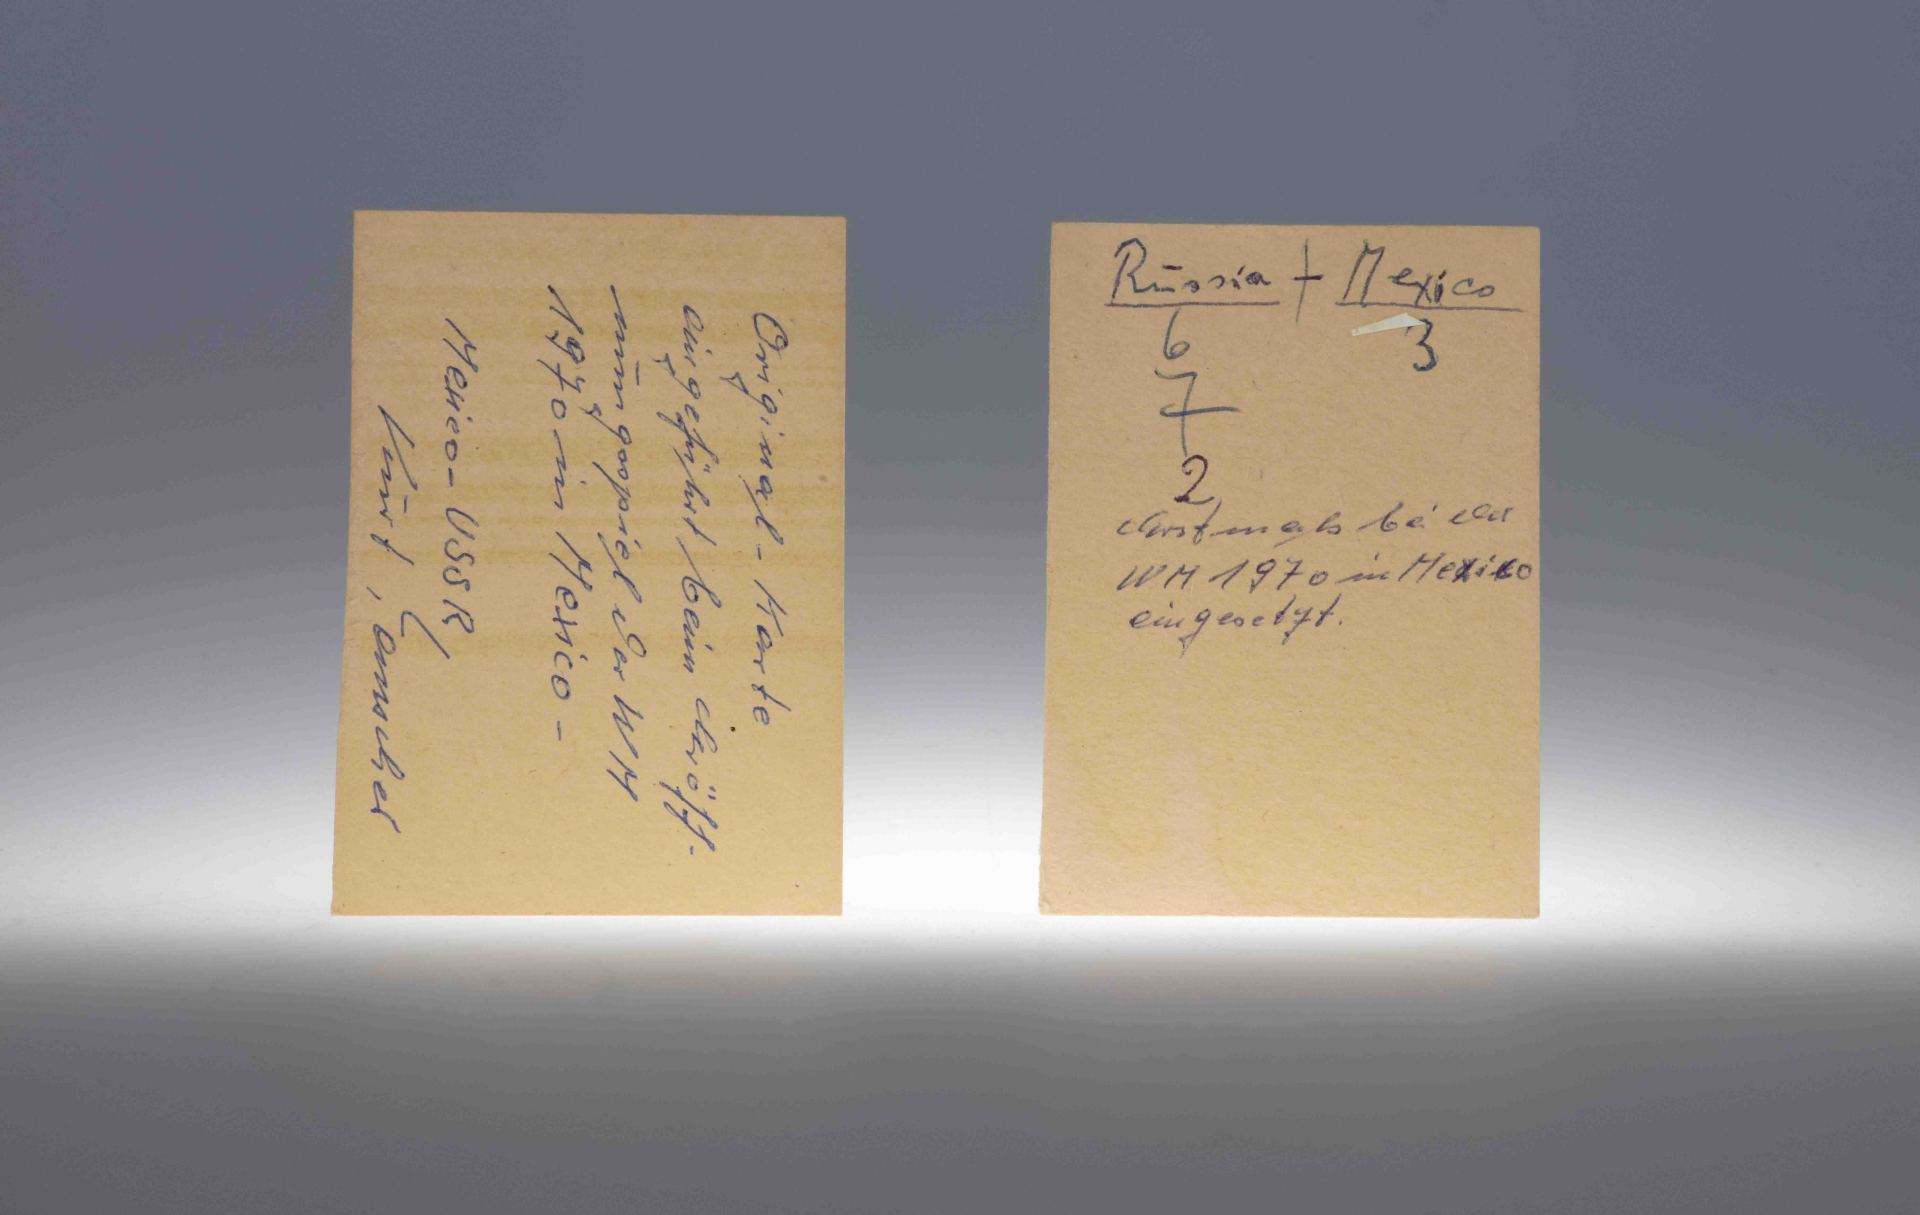 Original-Karte
eingeführt beim Eröff-
nungsspiel der WM
1970 in Mexico -
Mexico-USSR
Kurt Tschenscher
Russia + Mexico
6 3
7
2
Erstmals bei der
WM 1970 in Mexico
eingesetzt.